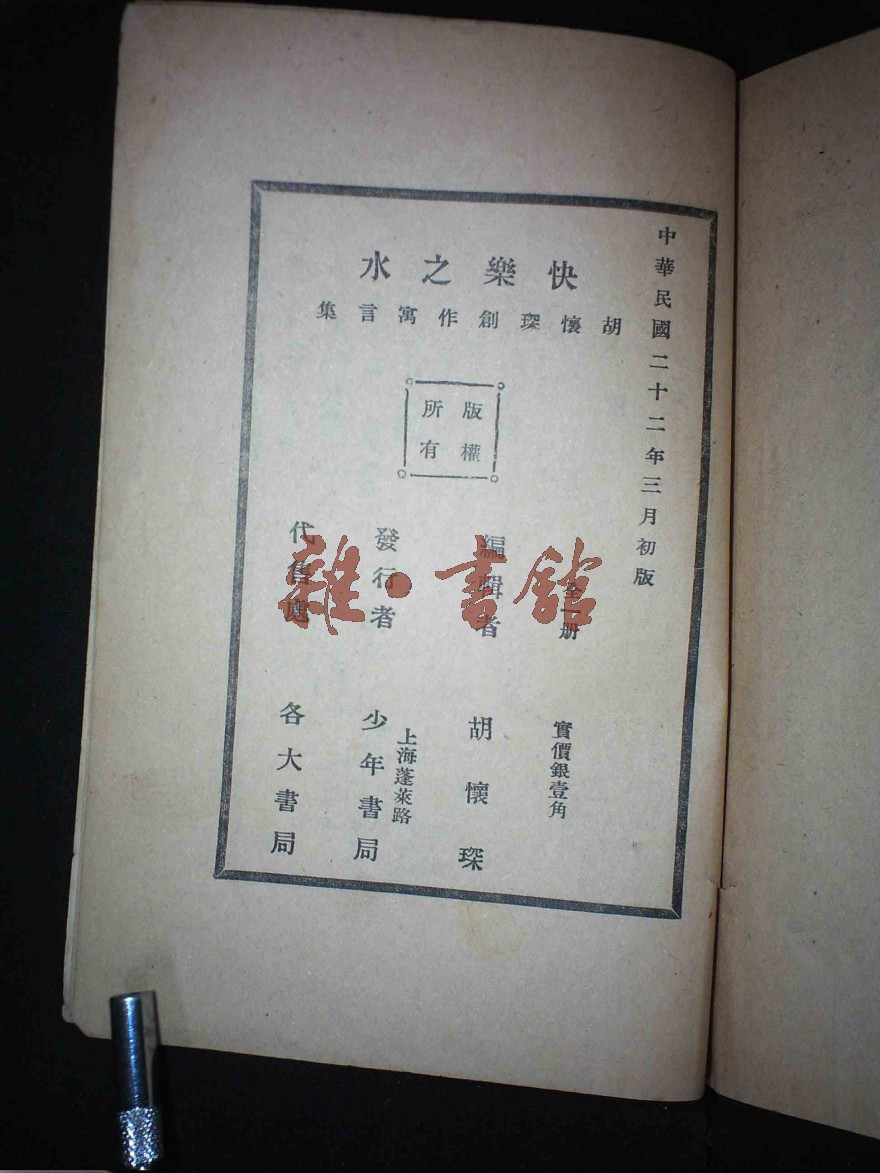 中華民國二十二年三月初版
快樂之水
胡懷琛創作寓言集
版權
所有
全一册
實價銀壹角
編輯者
胡懷琛
發行者
上海蓬萊路
少年書局
代售處
各大書局
雜·書館